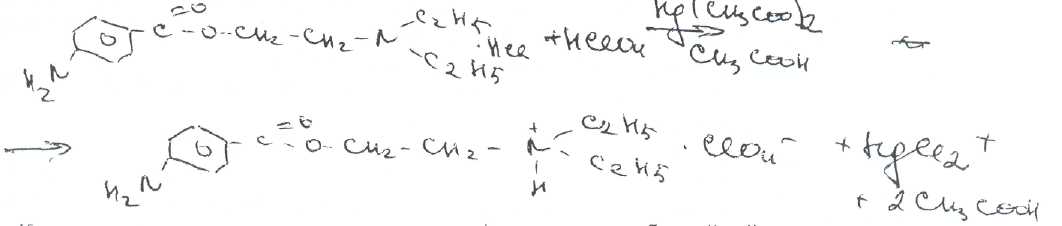 H₂N-⌬-C(=O)-O-CH₂-CH₂-N(C₂H₅)(C₂H₅)·HCl + HClO₄ →[Hg(CH₃COO)₂ / CH₃COOH]
→ H₂N-⌬-C(=O)-O-CH₂-CH₂-N⁺(H)(C₂H₅)(C₂H₅)·ClO₄⁻ + HgCl₂ +
+ 2CH₃COOH